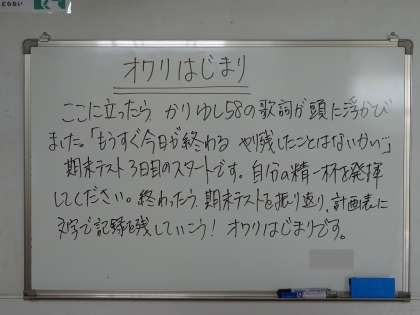 オワリはじまり
ここに立ったら、かりゆし58の歌詞が頭に浮かび
ました。「もうすぐ今日が終わる やり残したことはないかい」
期末テスト3日目のスタートです。自分の精一杯を発揮
してください。終わったら、期末テストを振り返り、計画表に
文字で記録を残していこう！オワリはじまりです。